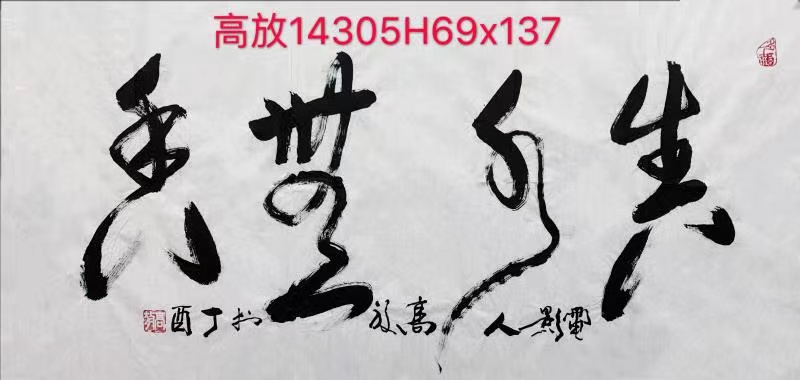 高放14305H69x137
真水無香
電影人高放於丁酉